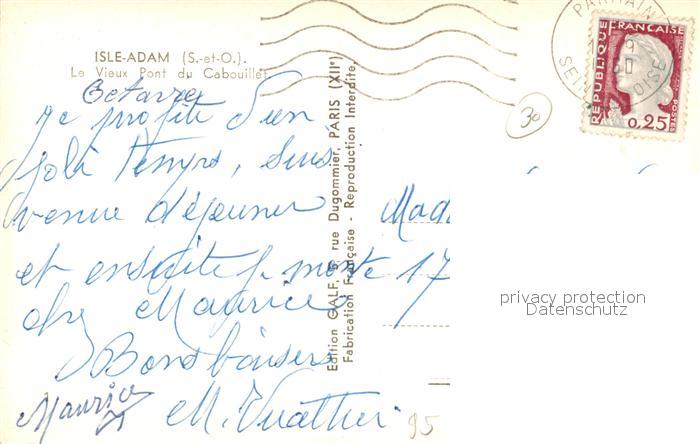 ISLE-ADAM (S.-et-O.).
Le Vieux Pont du Cabouillet
Octavie
Je profite d'un
joli temps, suis
venue déjeuner
et ensuite je monte
chez Maurice
Bons baisers
M.
Maurice
Edition GALF, rue Dugommier, PARIS (XIIe)
Fabrication Française - Reproduction Interdite.
Mad
17
PARMAIN
SEINE OISE
REPUBLIQUE FRANÇAISE
POSTES
0,25
30
95
privacy protection
Datenschutz